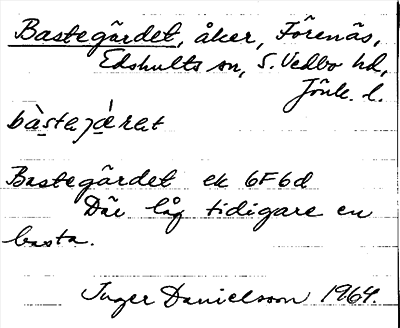 Bastegärdet, åker, Förenäs,
Edshults sn, S. Vedbo hd,
Jönk. l.
bàstejǽret
Bastegärdet ek 6F6d
Där låg tidigare en
basta.
Inger Danielsson 1964.